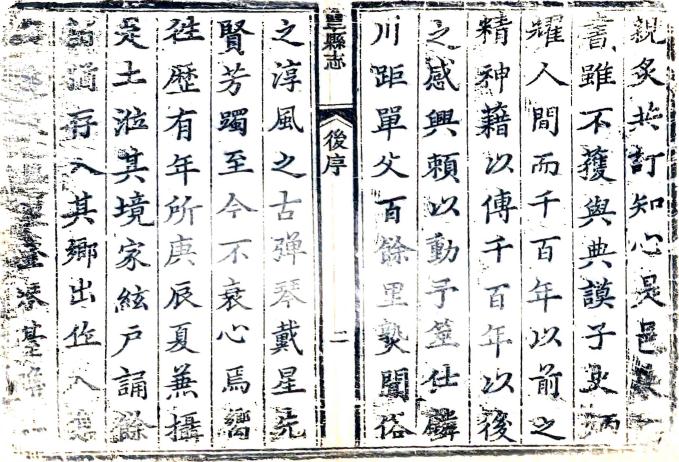 親炙共訂知心是邑
書雖不獲與典謨子史炳
燿人間而千百年以前之
精神藉以傳千百年以後
之感興賴以動予筮仕麟
川距單父百餘里熟聞俗
單縣志
後序
二
之淳風之古彈琴戴星先
賢芳躅至今不衰心焉嚮
徃歷有年所庚辰夏兼攝
是土涖其境家絃戶誦餘
韻猶存入其鄉出作入息
登琴臺